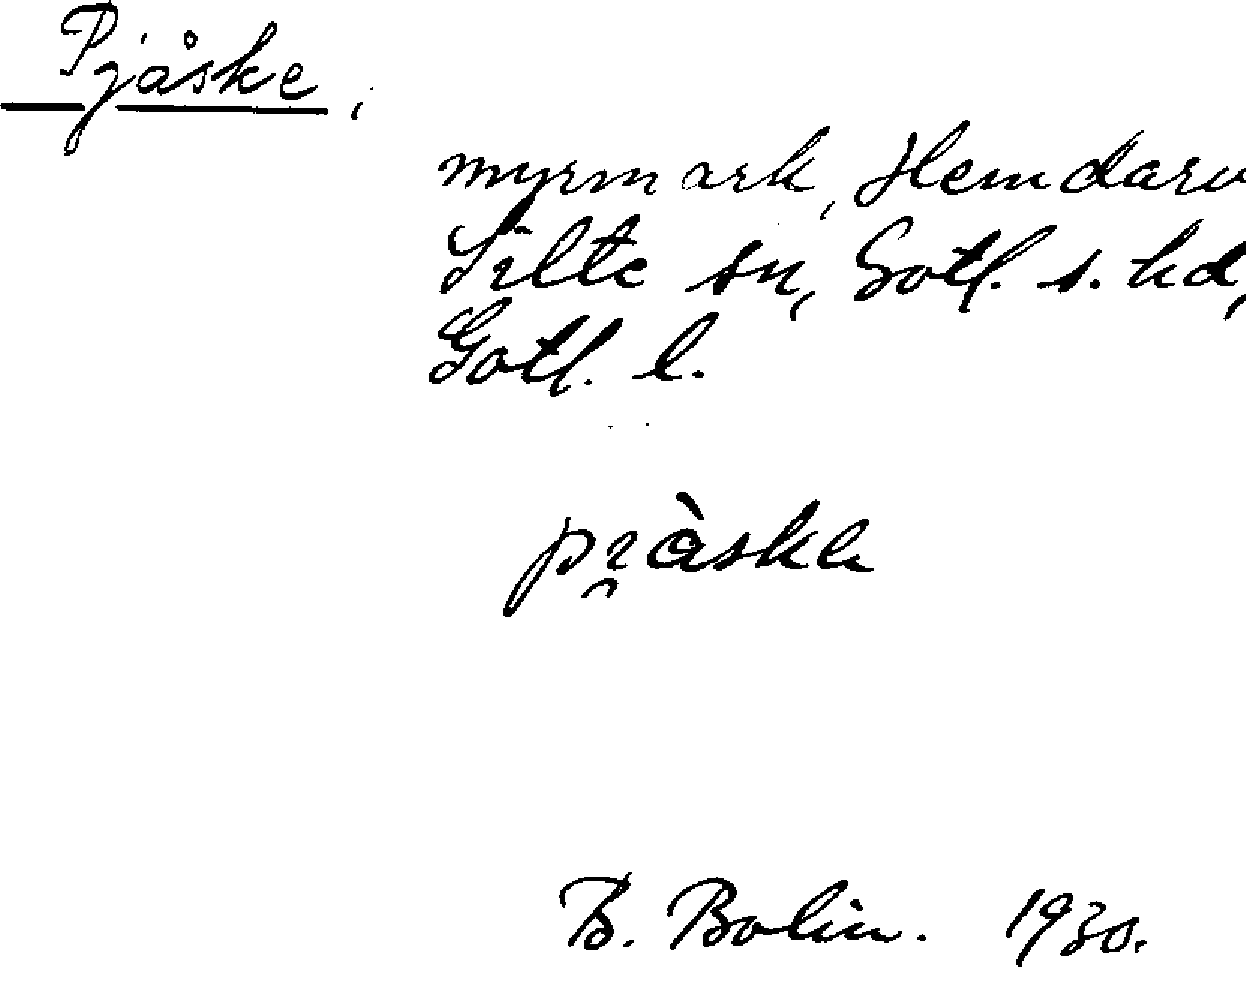 Pjåske,
myrmark, Hemdarv
Silte sn, Gotl. s. hd,
Gotl. l.
B. Bolin. 1930.